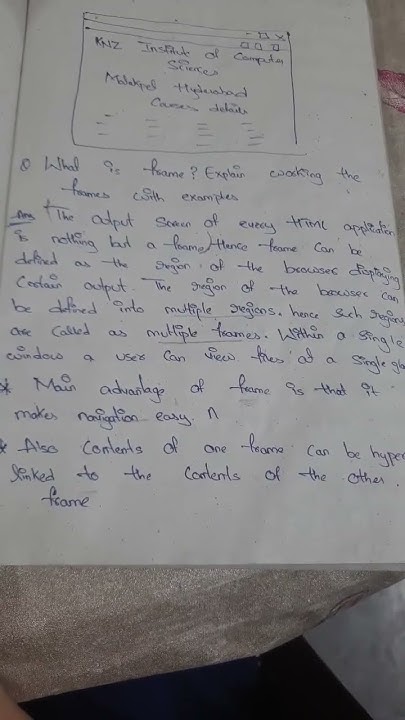 KNZ Institute of Computer
Sciences
Malakpet Hyderabad
Courses details
Q What is frame? Explain working the
frames with examples
Ans The output screen of every HTML application
is nothing but a frame. Hence frame can be
defined as the region of the browser displaying
Certain output. The region of the browser can
be defined into multiple regions. hence such regions
are called as multiple frames. Within a single
window a user can view files at a single
* Main advantage of frame is that it
makes navigation easy.
* Also Contents of one frame can be hyper
linked to the Contents of the other
frame